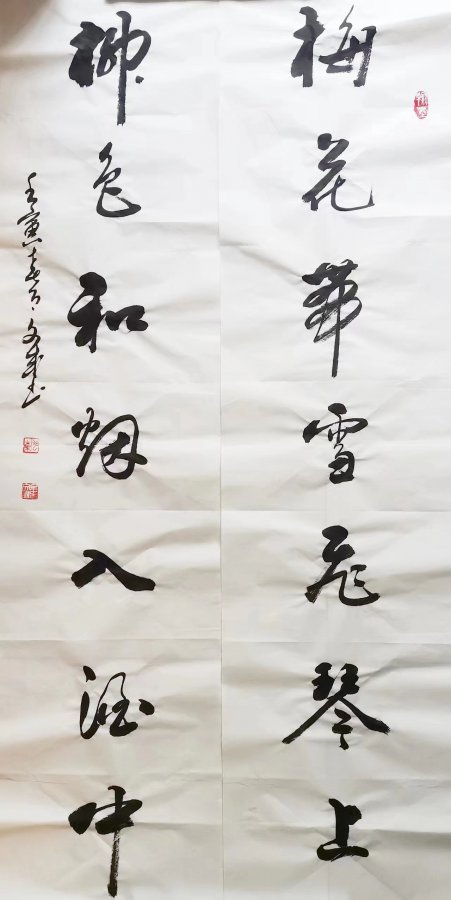 梅花带雪飞琴上
柳色和烟入酒中
壬寅春月文武书